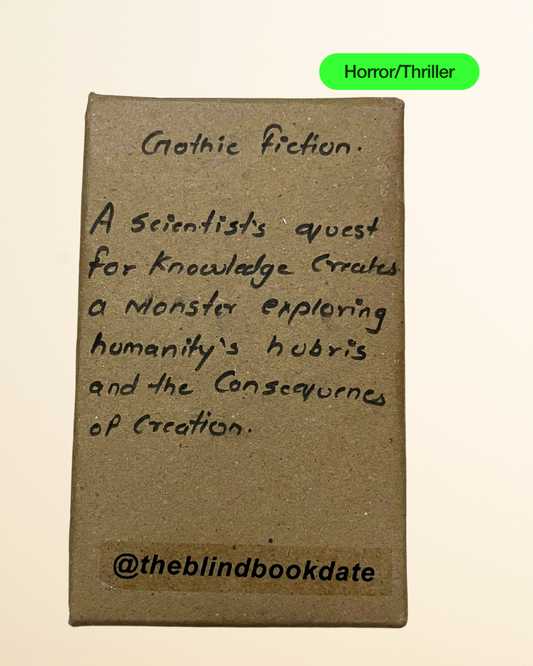 Horror/Thriller
Gothic fiction.
A scientist's quest
for Knowledge Creates
a Monster exploring
humanity's hubris
and the Consequenes
of Creation.
@theblindbookdate